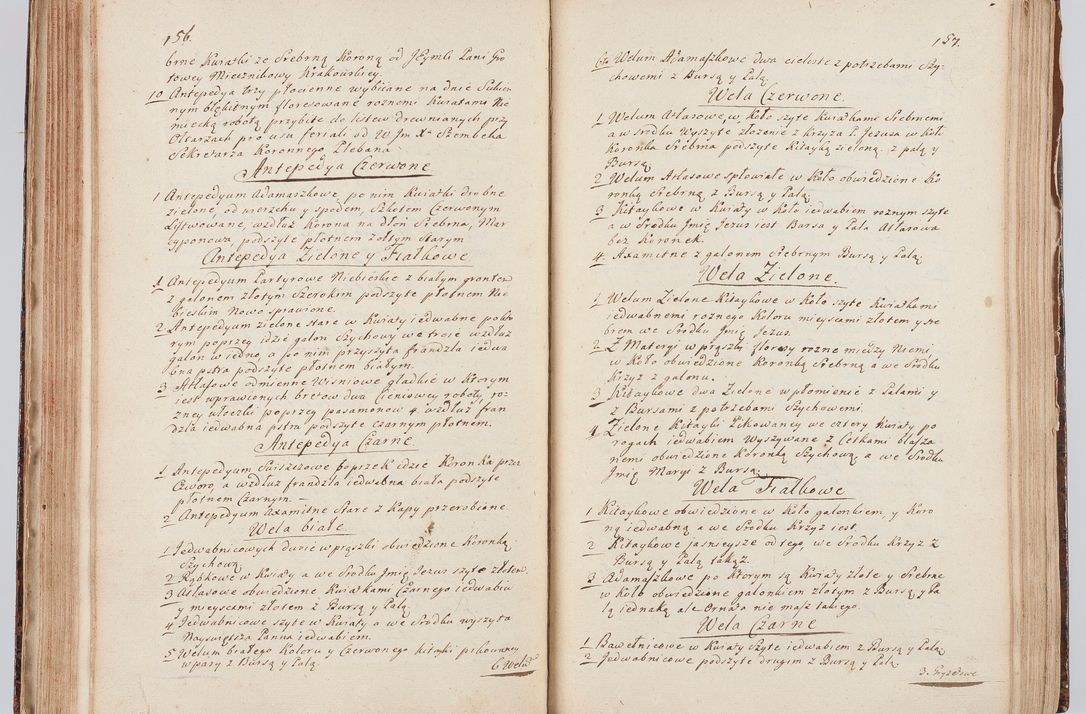 156.
brne Kwiatki ze Srebrną Koroną od JEymLi Pani Gro
towey Miecznikowy Krakowskiey.
10 Antepedya trzy płocienne wybiiane na dnie Subtel
nym błękitnym floresowane roznemi Kwiatami Nie
miecką robotą przybite do listew drewnianych przy
Ołtarzach pro usu feriali od W Jm Xa Szembeka
Sekretarza Koronnego Plebana
Antepedya Czerwone
1 Antepedyum Adamaszkowe po nim Kwiatki drobne
zielone, od wierzchu y spodem, Szlakiem Czerwonym
Listwowane, wzdłuz Korona na dłoń Srebrna, Mar
cyponowa, podszyte płotnem żołtym starym
Antepedya Zielone y Fialkowe
1 Antepedyum Partyrowe Niebieskie z białym gruntem
z galonem złotym Szerokim podszyte płotnem Nie
bieskim Nowo sprawione.
2 Antepedyum zielone stare w Kwiaty iedwabne po kto
rym poprzeg idzie galon Szychowy we troie wzdłuz
galon w iedno, a po nim przyszyta frandzla iedwa
bna pstra podszyte płotnem białym.
3 Atlasowe odmienne Wisniowe gładkie w Ktorym
iest wprawionych bretow dwa Cieniowey roboty ro:
zney włoczki poprzeg pasamonow 4. wzdłuz fran
dzla iedwabna pstra podszyte czarnym płotnem.
Antepedya Czarne
1 Antepedyum Swiszczowe poprzek idzie Koronka przez
Czworo, a wzdłuz frandzla iedwabna biała podszyte
płotnem Czarnym. —
2 Antepedyum Axamitne Stare z Kapy przerobione.
Wela białe.
1 Jedwabnicowych dwoie w ptaszki obwiedzione Koronką
Szychową
2 Rąbkowe w Kwiaty a we Srodku Jmię Jezus szyte złotem.
3 Atlasowe obwiedzione Kwiatkami Czarnego iedwabiu
y mieyscami złotem z Bursą y Palą.
4 Jedwabnicowe szyte w Kwiaty a we Srodku wyszyta
Nayswiętsza Panna iedwabiem.
5 Welum białego Koloru y Czerwonego kitayki pikowaney
w pasy z Bursą y Palą.
6 Wela

157.
6. Welum Adamaszkowe dwa cieliste z potrzebami Szy-
chowemi z Bursą y Palą.
Wela Czerwone.
1 Welum Atłasowe, w koło szyte Kwiatkami Srebrnemi
a w srodku Wyszyte złozenie z krzyza P. Jezusa w koło
Koronka Srebrna podszyte Kitayką zieloną. z palą y
Bursą
2 Welum Atłasowe spłowiałe w Koło obwiedzione Ko
ronką Srebrną z Bursą y Palą.
3 Kitaykowe w Kwiaty w Koło iedwabiem roznym szyte
a w Srodku Jmię Jezus iest Bursa y Pala Atłasowa
bez Koronek.
4. Axamitne z galonem Srebrnym Bursą y Palą.
Wela Zielone.
1 Welum Zielone Kitaykowe w Koło szyte Kwiatkami
iedwabnemi roznego Koloru mieyscami złotem y sre
brem we Srodku Jmię Jezus.
2 Z Materyi w prązki floresy rozne miedzy Niemi
w Koło obwiedzione Koronką Srebrną a we Srodku
Krzyz z galonu.
3 Kitaykowe dwa Zielone w płomienie z Palami y
z Bursami z potrzebami Szychowemi.
4 Zielone Kitayki Pikowaney we cztery Kwiaty po
rogach iedwabiem Wyszywane z Cetkami blasza
nemi obwiedzione Koronką Szychową, a we Srodku
Jmię Maryi z Bursą.
Wela Fialkowe
1 Kitaykowe obwiedzione w Koło galonkiem y Koro
ną iedwabną a we Srodku Krzyz iest.
2 Kitaykowe jasnieysze od tego, we Srodku Krzyz z
Bursą y Palą takąz.
3 Adamaszkowe po Ktorym są Kwiaty złote y Srebrne
w Koło obwiedzione galonkiem złotym z Bursą y Pa
lą iednaką ale Ornata nie masz takiego.
Wela Czarne
1 Bawełnicowe w Kwiaty szyte iedwabiem z Bursą y Palą.
2 Jedwabnicowe podszyte drugim z Bursą y Palą.
3. Gryzetowe